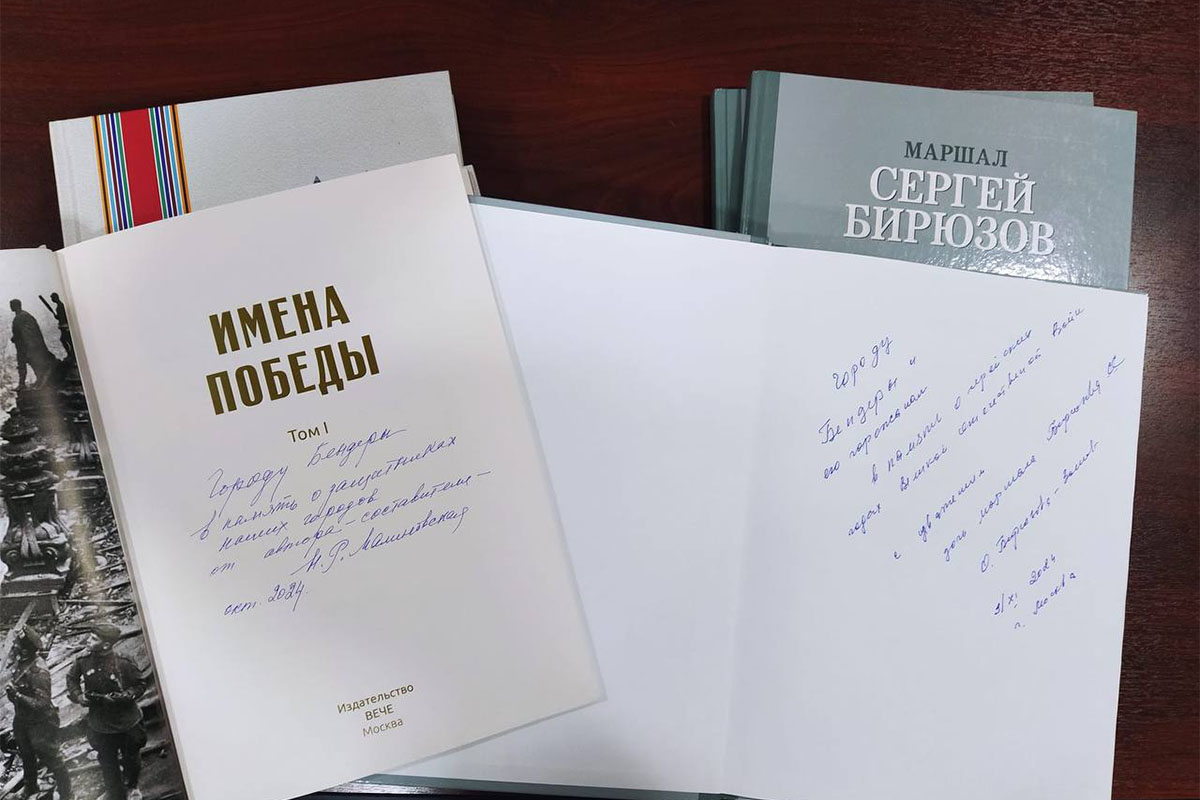 МАРШАЛ
СЕРГЕЙ
БИРЮЗОВ
ИМЕНА
ПОБЕДЫ
Том I
Городу Бендеры
в память о защитниках
наших городов
от автора-составителя-
Н.Р. Малиновская
окт. 2024.
Издательство
ВЕЧЕ
Москва
городу
Бендеры и
его горожанам
в память о геройских
годах Великой отечественной войны
с уважением
дочь маршала Бирюзова
О. Бирюзова-
2024
г. Москва